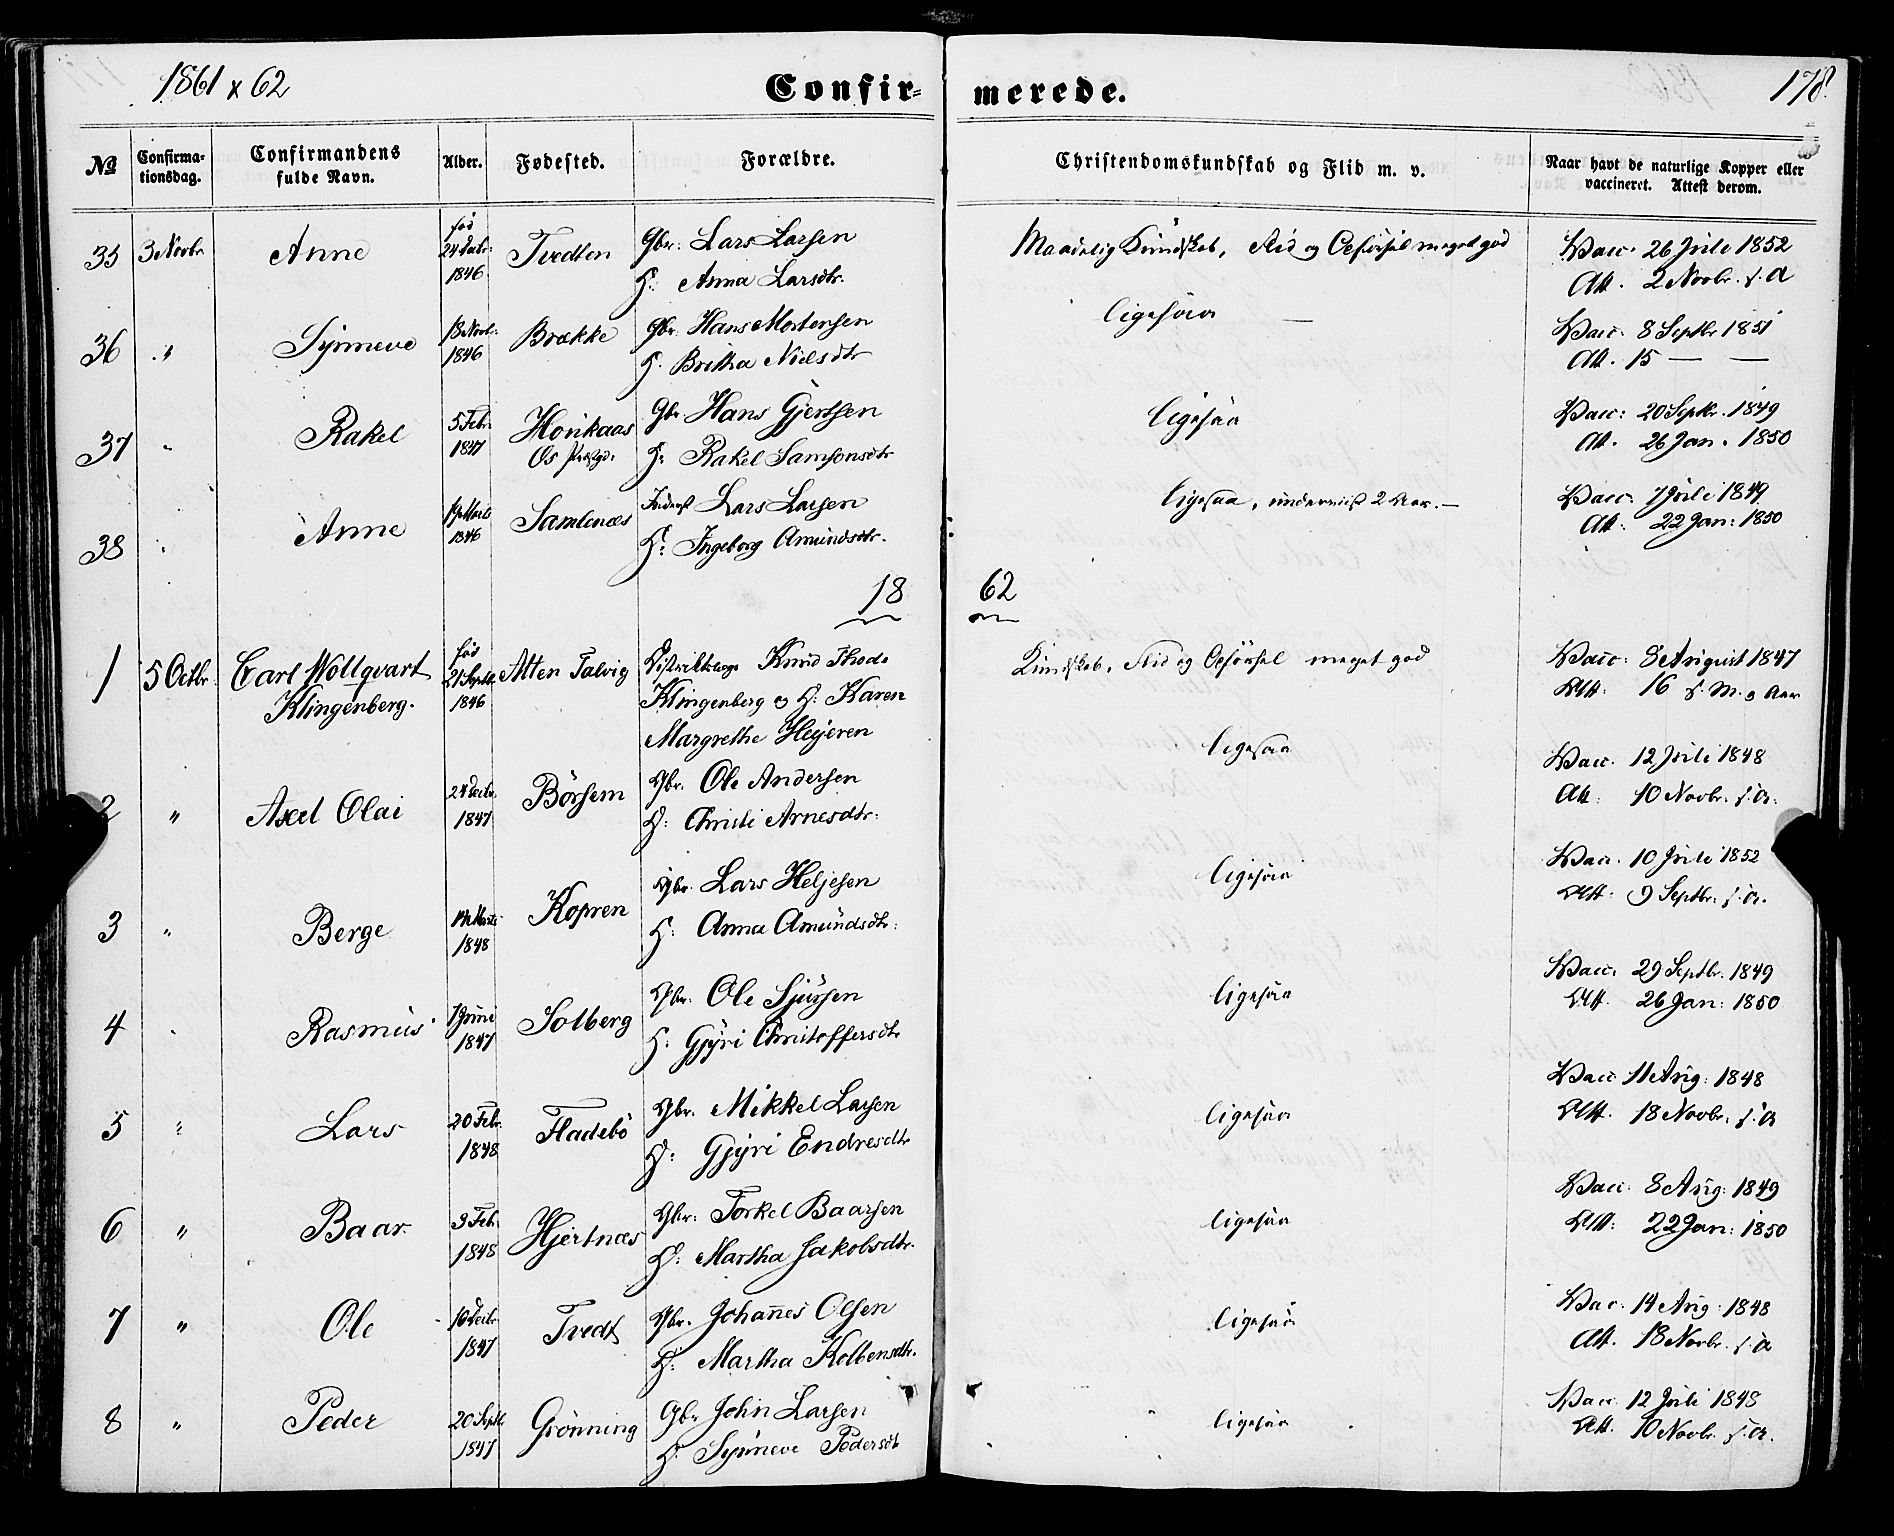 1861 x 62 Confir= merede. 178.
No Confirma-tionsdag. Confirmandens fulde Navn. Alder. Fødested. Forældre. Christendomskundskab og Flid m. v. Naar havt de naturlige Kopper eller vaccineret. Attest derom.
35 3 Novbr. Anne fød 24 Decbr. 1846 Tvedten Gbr. Lars Larsen Maadelig Kundskab, Flid og Opførsel meget god Vacc. 26 Juli 1852
H. Anna Larsdtr. Att. 2 Novbr. s. A
36 " Synneve 18 Novbr. 1846 Brække Gbr. Hans Mortensen ligesaa — Vacc. 8 Septbr 1851
H. Britha Nielsdtr Att. 15 — —
37 " Rakel 5 Febr. 1847 Hovikaas Gbr Hans Gjertsen ligesaa Vacc: 20 Septbr. 1849
Os Præstgd: H. Rakel Samsonsdtr Att. 26 Jan. 1850
38 " Anne Marts 1846 Samlenæs Inderst Lars Larsen ligesaa, underviist 2 Aar. — Vacc. 7 Juli 1849
H: Ingeborg Amundsdtr. Att: 22 Jan: 1850
18 62
1 5 Octbr. Carl Wollqvart fød 21 Septbr. 1846 Alten Talvig Distriktslæge Knud Thode Kundskab, Flid og Opførsel meget god Vacc: 8 August 1847
Klingenberg. Klingenberg og H: Karen Att: 16 s. M. o Aar
Margrethe Heyeren
2 " Axel Olai 24 Decbr. 1847 Börsem Gbr. Ole Andersen ligesaa Vacc. 12 Juli 1848
H: Christi Arnesdtr. Att: 10 Novbr. s. A.
3 " Berge Marts 1848 Kopren Gbr. Lars Heljesen ligesaa Vacc. 10 Juli 1852
H: Anna Amundsdtr: Att: 9 Septbr. s. A.
4 " Rasmus Juni 1847 Solberg Gbr. Ole Sjursen ligesaa Vacc: 29 Septbr. 1849
H: Gjyri Christoffersdtr Att. 26 Jan: 1850
5 " Lars 20 Febr. 1848 Fladebö Gbr. Mikkel Larsen ligesaa Vacc. 11 Aug: 1848
H: Gjyri Endresdtr Att. 18 Novbr. s. A
6 " Baar 3 Feb. 1848 Hjertnæs Gbr. Torkel Baarsen ligesaa Vacc. 8 Aug: 1849
H: Martha Jakobsdtr. Att: 22 Jan: 1850
7 " Ole 10 Decbr. 1847 Tvedt Gbr. Johannes Olsen ligesaa Vac: 14 Aug: 1848
H: Martha Kolbensdtr. Att. 18 Novbr. s. A
8 " Peder 20 Septbr 1847 Grönning Gbr John Larsen ligesaa Vacc. 12 Juli 1848
H. Synneve Pedersdt Att. 10 Novbr. s. A.